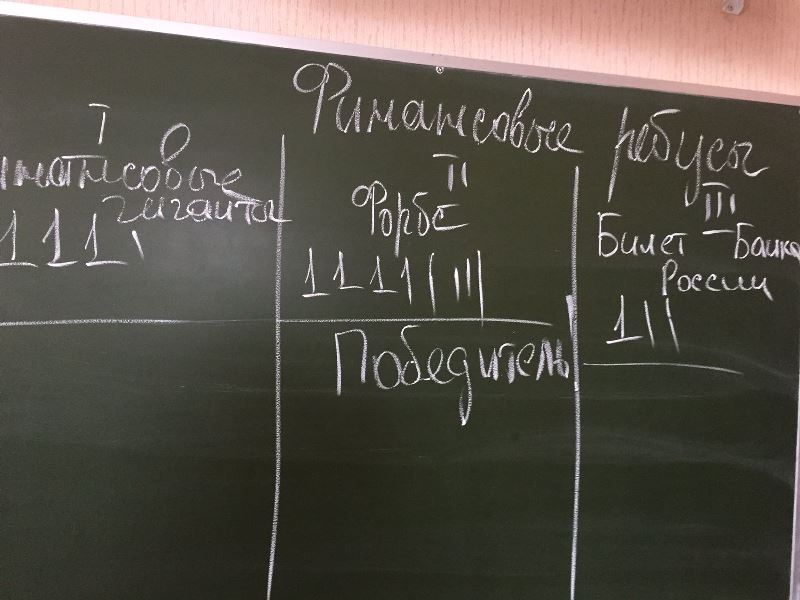 Финансовые ребусы
I
инансовые
гиганты
1 1 1 \
II
Форбс
1 1 1 1 | | | |
Победитель
III
Билет Банка
России
1 | |